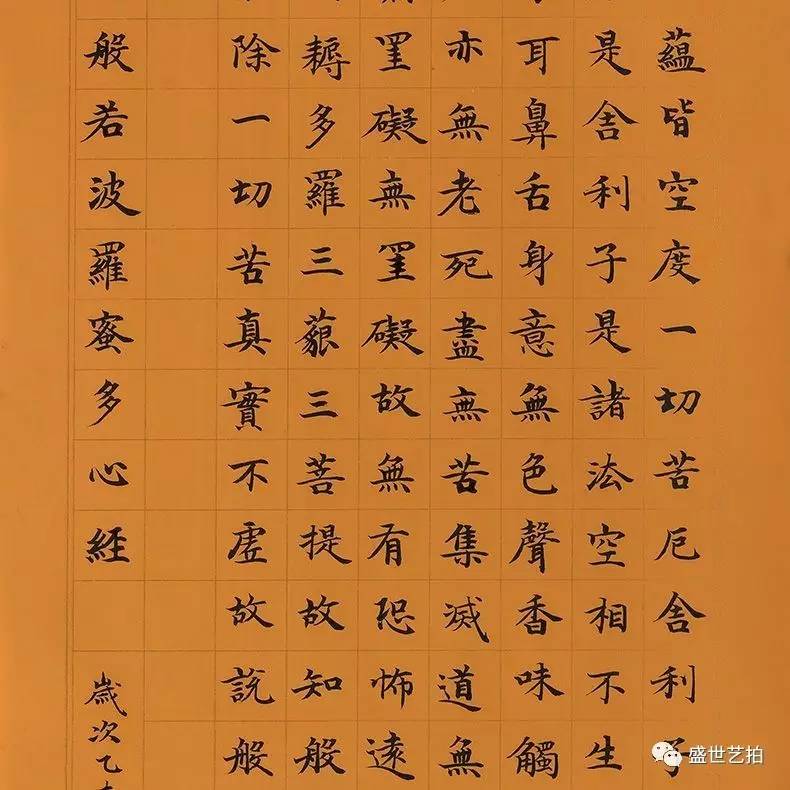 蘊皆空度一切苦厄舍利子
是舍利子是諸法空相不生
耳鼻舌身意無色聲香味觸
亦無老死盡無苦集滅道無
罣礙無罣礙故無有恐怖遠
耨多羅三藐三菩提故知般
除一切苦真實不虛故說般
般若波羅蜜多心經
歲次乙
盛世艺拍